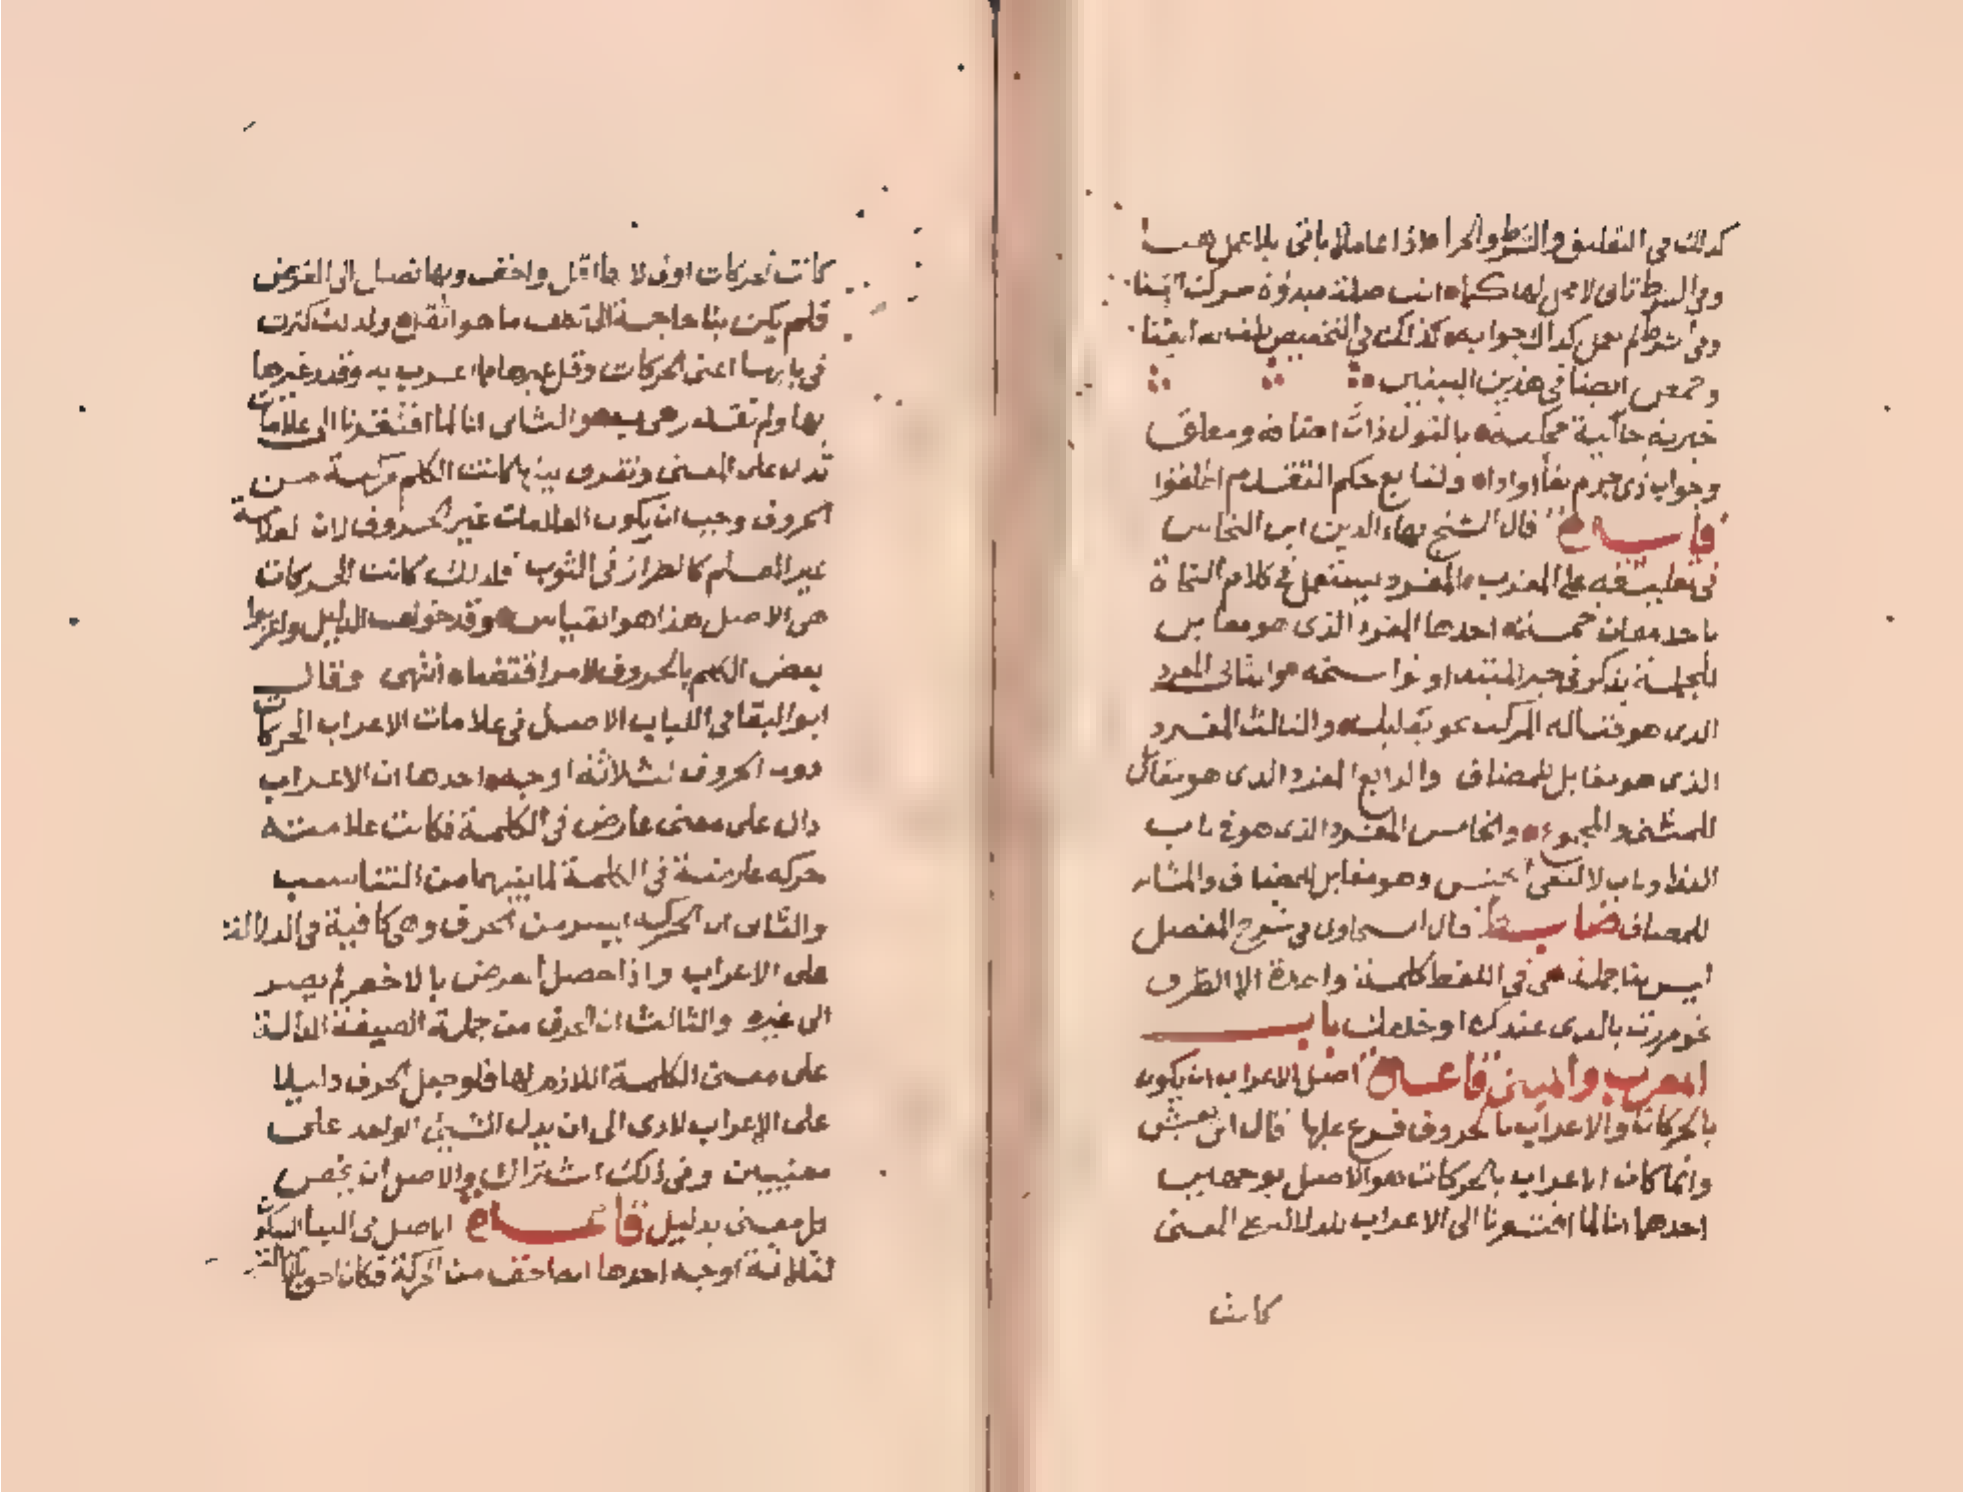 كذلك في التعليق والشرط والجزاء اذا عاملا ياتي بلا عمل هنا
وفي الشرط ثاني لا محل لها كما انت صلة مبدؤة
وفي شرط لم يعمل كذاك جوابه كذلك في التخصيص ايضا
في هذين البيتين
خبرية حالية محكية بالقول ذات اضافة ومعلق
وجواب ذي جزم بفاء او اذا ولتابع حكم التقدم اطلقوا
فايدة قال الشيخ بهاء الدين ابن النحاس
في تعليقه على المقرب المفرد يستعمل في كلام النحاة
باحد معان خمسة احدها المفرد الذي هو مقابل
للجملة يذكر في خبر المبتدا ونواسخه الثاني المفرد
الذي هو قبالة المركب نحو بعلبك والثالث المفرد
الذي هو مقابل للمضاف والرابع المفرد الذي هو مقابل
للمثنى والمجموع والخامس المفرد الذي هو في باب
الندا وباب لا لنفي الجنس وهو مقابل للمضاف والمشابه
للمضاف ضابط قال السخاوي في شرح المفصل
ليس لنا جملة هي في اللفظ كلمة واحدة الا الظرف
نحو مررت بالذي عندك او خلفك باب
المعرب والمبني قاعدة اصل الاعراب ان يكون
بالحركات والاعراب بالحروف فرع عليها قال ابن يعيش
وانما كان الاعراب بالحركات هو الاصل لوجهين
احدها انا لما افتقرنا الى الاعراب للدلالة على المعنى
كانت
كانت الحركات اولى لانها اقل واخف وبها نصل الى الغرض
فلم يكن بنا حاجة الى تكلف ما هو اثقل ولذلك كثرت
في بابها اعني الحركات وقل غيرها مما اعرب به وقدر غيرها
بها ولم تقدر هي به والثاني انا لما افتقرنا الى علامات
تدل على المعنى وتفرق بينها وكانت الكلم مركبة من
الحروف وجب ان يكون العلامات غير الحروف لان العلامة
غير المعلم كالطراز في الثوب فلذلك كانت الحركات
هي الاصل هذا هو القياس وقد خولف الدليل واعربوا
بعض الكلم بالحروف لامر اقتضاه انتهى وقال
ابو البقا في اللباب الاصل في علامات الاعراب الحركات
دون الحروف لثلاثة اوجه احدها ان الاعراب
دال على معنى عارض في الكلمة فكانت علامته
حركه عارضة في الكلمة لما بينهما من التناسب
والثاني ان الحركه ايسر من الحرف وهي كافية في الدلالة
على الاعراب واذا حصل الغرض بالاخصر لم يصر
الى غيره والثالث ان الحرف من جملة الصيغة الدالة
على معنى الكلمة اللازم لها فلو جعل الحرف دليلا
على الاعراب لادى الى ان يدل الشيئ الواحد على
معنيين وفي ذلك اشتراك والاصل ان يخص
كل معنى بدليل قاعدة الاصل في البنا السكون
لثلاثة اوجه احدها انه اخف من الحركة فكان احق بالبنا